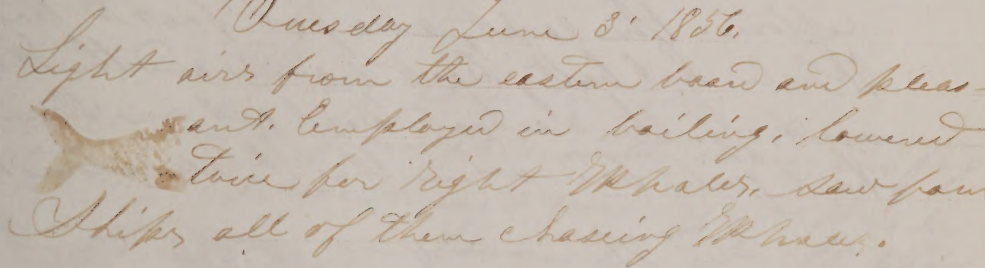 Tuesday June 3' 1856.
Light airs from the eastern board and pleas-
ant. Employed in boiling, lowered
twice for right Whales, saw four
Ships all of them chasing Whales.